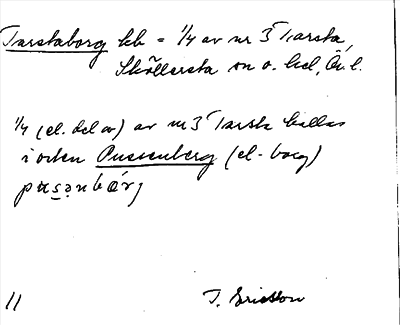 Tarstaborg kb = 1/4 av nr 3 Tarsta,
Sköllersta sn o. hd, Ör. l.
1/4 (el. del av) av nr 3 Tarsta kallas
i orten Pussenberg (el -borg)
11
T. Ericsson